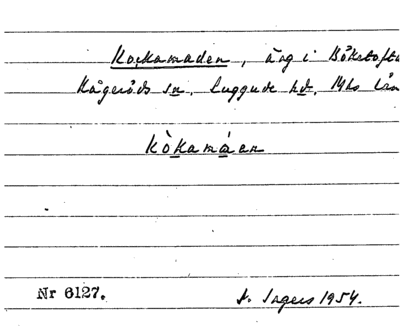 Kockamaden, äng i Bökstofta
Kågeröds sn. Luggude hd. Mhs län
kòkamáen
Nr 6127. Ingers 1954.